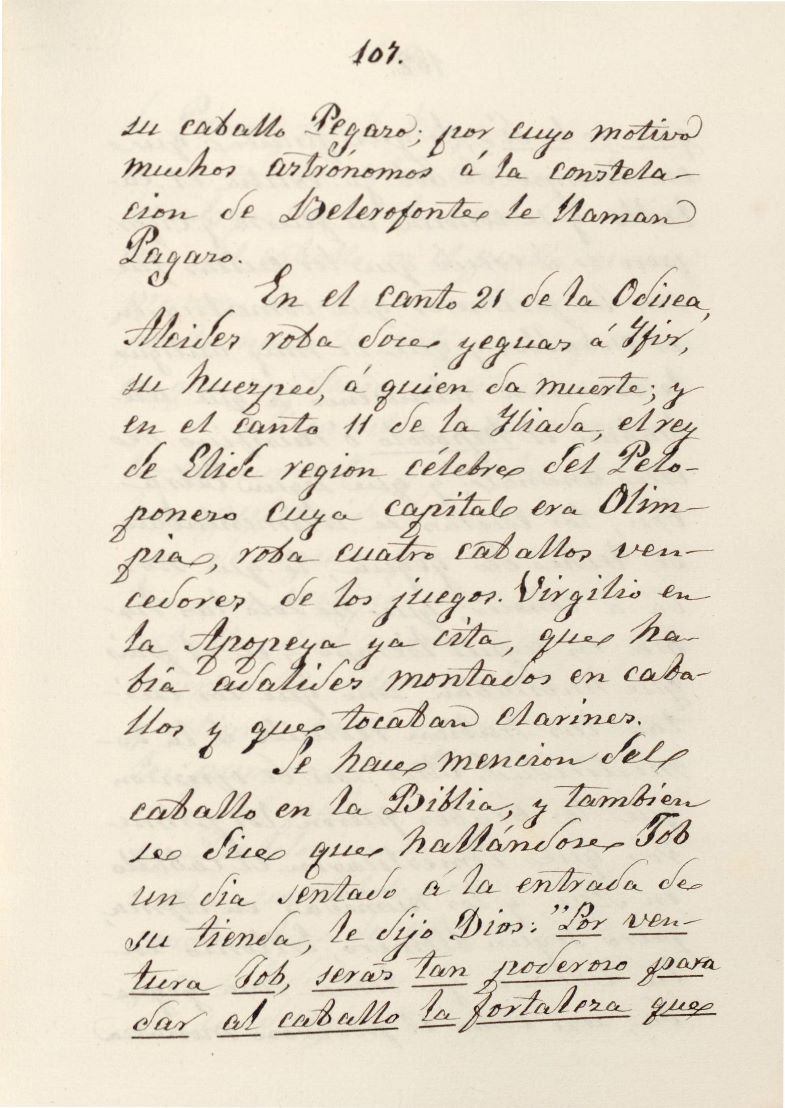 107.
su caballo Pegaso; por cuyo motivo
muchos astrónomos á la constela-
cion de Belerofonte le llaman
Pagaso.
En el canto 21 de la Odisea,
Alcides roba doce yeguas á Ifis,
su huesped, á quien da muerte; y
en el canto 11 de la Iliada, el rey
de Elide region célebre del Pelo-
poneso cuya capital era Olim-
pia, roba cuatro caballos ven-
cedores de los juegos. Virgilio en
la Apopeya ya cita, que ha-
bia adalides montados en caba-
llos y que tocaban clarines.
Se hace mencion del
caballo en la Biblia, y tambien
se dice que hallándose Job
un dia sentado á la entrada de
su tienda, le dijo Dios: "Por ven-
tura Job, serás tan poderoso para
dar al caballo la fortaleza que